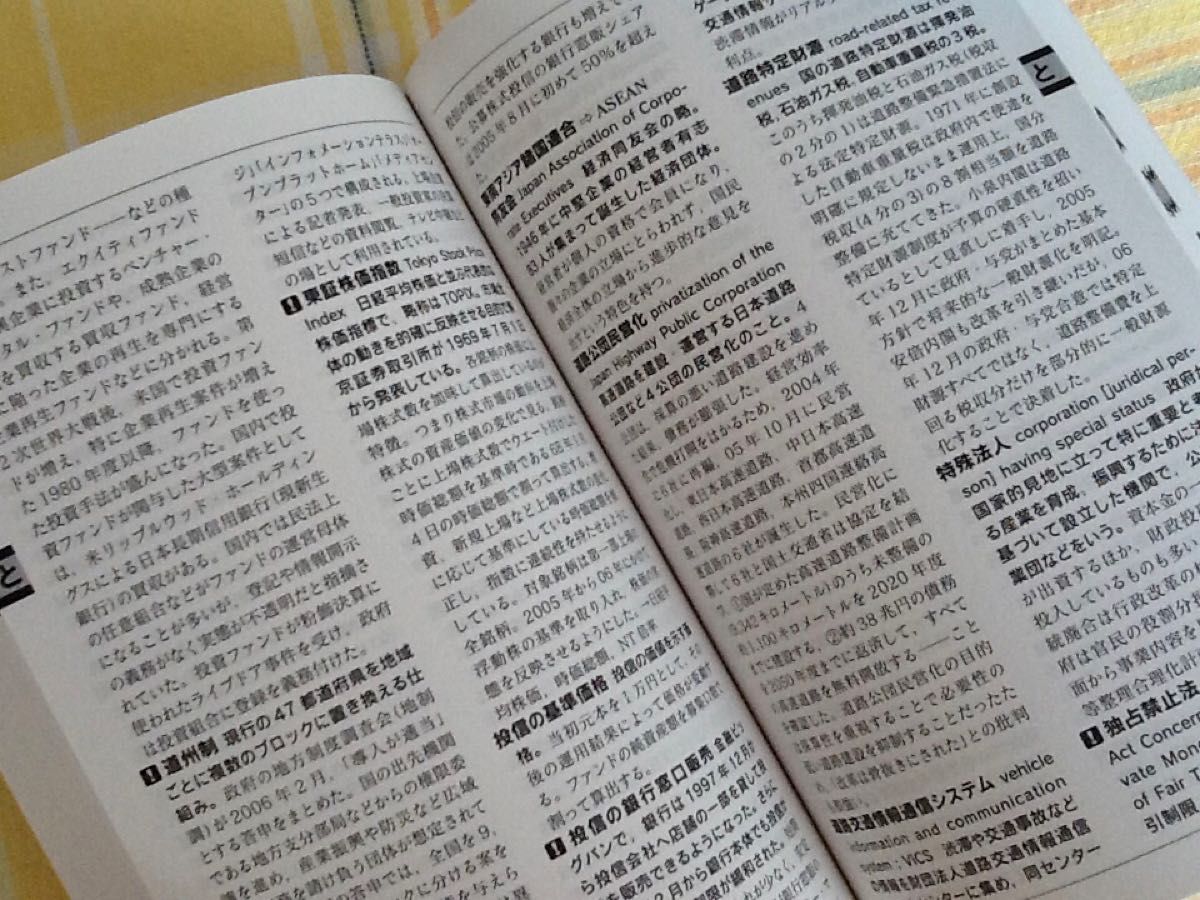 ストファンド——などの種
。また、エクイティファンド
興企業に投資するベンチャー
タルファンドや、成熟企業の
を買収する買収ファンド、経営
に陥った企業の再生を専門にする
企業再生ファンドなどに分かれる。第
2次世界大戦後、米国で投資ファン
ドが増え、特に企業再生案件が増え
た1980年度以降、ファンドを使っ
た投資手法が盛んになった。国内で投
資ファンドが関与した大型案件として
は、米リップルウッド・ホールディン
グスによる日本長期信用銀行(現新生
銀行)の買収がある。国内では民法上
の任意組合などがファンドの運営母体
になることが多いが、登記や情報開示
の義務がなく実態が不透明だと指摘さ
れていた。投資ファンドが粉飾決算に
使われたライブドア事件を受け、政府
は投資組合に登録を義務付けた。
道州制 現行の47都道府県を地域
ごとに複数のブロックに置き換える仕
組み。政府の地方制度調査会(地制
調)が2006年2月、「導入が適当」
とする答申をまとめた。国の出先機関
である地方支分部局などからの権限委
譲を進め、産業振興や防災など広域
を請け負う団体が想定されて
の答申では、全国を9、
クに分ける案を
を与えら
と
ジ」「インフォメーションテラス」「オー
プンプラットホーム」「メディアセン
ター」の5つで構成される。上場企業
による記者発表、一般投資家の
短信などの資料閲覧、テレビ中継など
の場として利用されている。
東証株価指数 Tokyo Stock Price
Index 日経平均株価と並ぶ代表的な
株価指標で、略称はTOPIX。市場全
体の動きを的確に反映させる目的で東
京証券取引所が1969年7月1日
から発表している。各銘柄の株価に上
場株式数を加味して算出している
特徴。つまり株式市場の動向を上場
株式の資産価値の変化で見る。銘柄
ごとに上場株式数でウエート付けした
時価総額を基準時である68年1月
4日の時価総額で割って算出する。増
資、新規上場など上場株式数の変化
に応じて基準にしている時価総額を修
正し、指数に連続性を持たせるように
している。対象銘柄は第一部上場の
全銘柄。2005年から06年にかけて
浮動株の基準を取り入れ、株価の実
態を反映させるようにした。→日経平
均株価、時価総額、NT倍率
投信の基準価格 投信の価値を示す価
格。当初元本を1万円として、その
後の運用結果によって価格が変動す
る。ファンドの純資産総額を総口数で
割って算出する。
投信の銀行窓口販売 金融ビッ
グバンで、銀行は1997年12月か
ら投信会社へ店舗の一部を貸して投
を販売できるようになった。さらに
2月から銀行本体でも投信
限が緩和された。
投信の販売を強化する銀行も増えて
、公募株式投信の銀行窓販シェア
は2005年8月に初めて50%を超え
た。
東南アジア諸国連合 ⇨ ASEAN
同友会 Japan Association of Corpo-
rate Executives 経済同友会の略。
1946年に中堅企業の経営者有志
83人が集まって誕生した経済団体。
経営者が個人の資格で会員になり、
個々の企業の立場にとらわれず、国民
経済全体の立場から進歩的な意見を
出すという特色を持つ。
道路公団民営化 privatization of the
Japan Highway Public Corporation
高速道路を建設・運営する日本道路
公団など4公団の民営化のこと。4
公団は、採算の悪い道路建設を進め
た結果、債務が膨張した。経営効率
化で危機打開をはかるため、2004年
に6社に再編、05年10月に民営
化し、東日本高速道路、中日本高速
道路、西日本高速道路、首都高速道
路、阪神高速道路、本州四国連絡高
速道路の6社が誕生した。民営化に
で6社と国土交通省は協定を結
び、①国が定めた高速道路整備計画
(9,342キロメートル)のうち未整備の
1,100キロメートルを2020年度
までに建設する、②約38兆円の債務
を2050年度までに返済して、すべて
の高速道路を無料開放する——こと
を確認した。道路公団民営化の目的
は採算性を重視することで必要性の
低い道路建設を抑制することだったた
め、「改革は骨抜きにされた」との批判
も根強い。
道路交通情報通信システム vehicle
information and communication
system:VICS 渋滞や交通事故など
の情報を財団法人道路交通情報通信
センターに集め、同センター
交通情報サ
渋滞情報がリアル
利点。
道路特定財源 road-related tax rev-
enues 国の道路特定財源は揮発油
税、石油ガス税、自動車重量税の3税。
このうち揮発油税と石油ガス税(税収
の2分の1)は道路整備緊急措置法に
よる法定特定財源。1971年に創設
した自動車重量税は政府内で使途を
明確に規定しないまま運用上、国分
税収(4分の3)の8割相当額を道路
整備に充ててきた。小泉内閣は道路
特定財源制度が予算の硬直性を招い
ているとして見直しに着手し、2005
年12月に政府・与党がまとめた基本
方針で将来的な一般財源化を明記。
安倍内閣も改革を引き継いだが、06
年12月の政府・与党合意では特定
財源すべてではなく、道路整備費を上
回る税収分だけを部分的に一般財源
化することで決着した。
特殊法人 corporation [juridical per-
son] having special status 政府が
国家的見地に立って特に重要と
る産業を育成、振興するために法
基づいて設立した機関で、公
業団などをいう。資本金の
が出資するほか、財政投
投入しているものも多い
統廃合は行政改革の
府は官民の役割分
面から事業内容を
等整理合理化計
独占禁止法
Act Conce
vate Mon
of Fair T
引制限
と